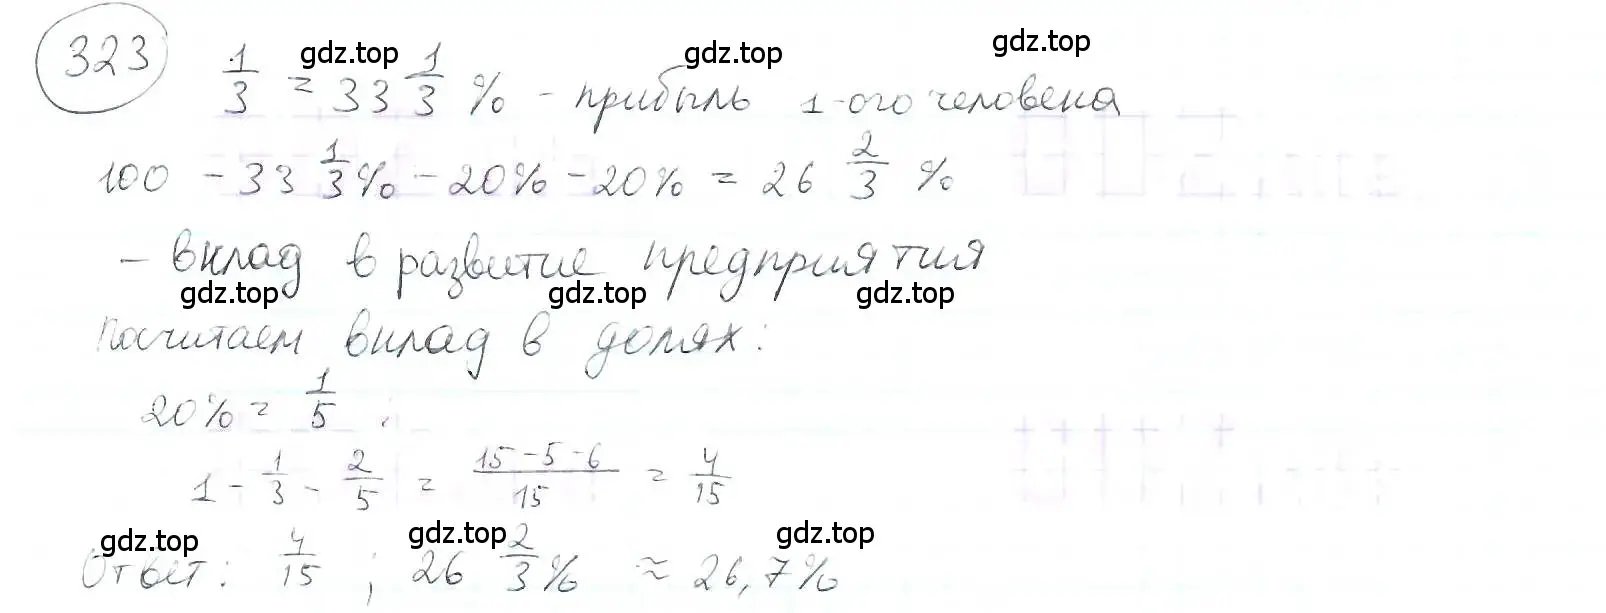 323
gdz.top gdz.top gdz.top
1/3 = 33 1/3 % - прибыль 1-ого человека
100 - 33 1/3% - 20% - 20% = 26 2/3 %
- вклад в развитие предприятия
gdz.top gdz.top gdz.top
Посчитаем вклад в долях:
20% = 1/5 ;
1 - 1/3 - 2/5 = (15 - 5 - 6)/15 = 4/15
gdz.top gdz.top gdz.top
Ответ: 4/15 ; 26 2/3% ≈ 26,7%